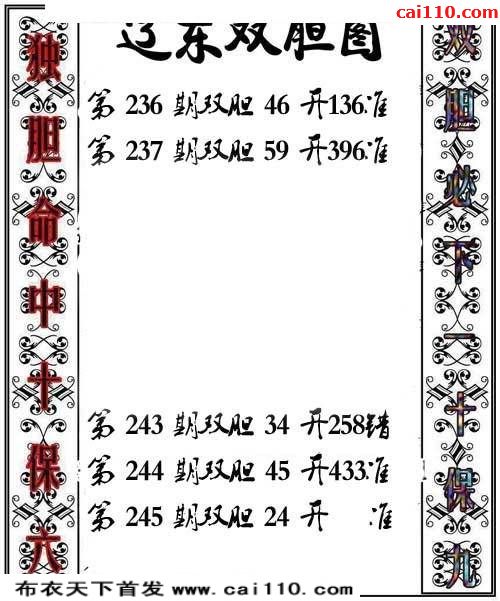 cai110.com
辽东双胆图
第 236 期双胆 46 开136准
第 237 期双胆 59 开396准
第 243 期双胆 34 开258错
第 244 期双胆 45 开433准
第 245 期双胆 24 开 准
独胆命中十保六
双胆必下一十保九
布衣天下首发 www.cai110.com